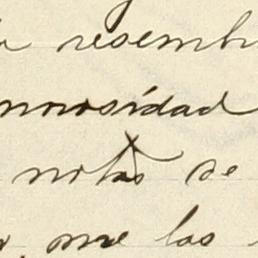 resemb
morosidad
notas de
me las